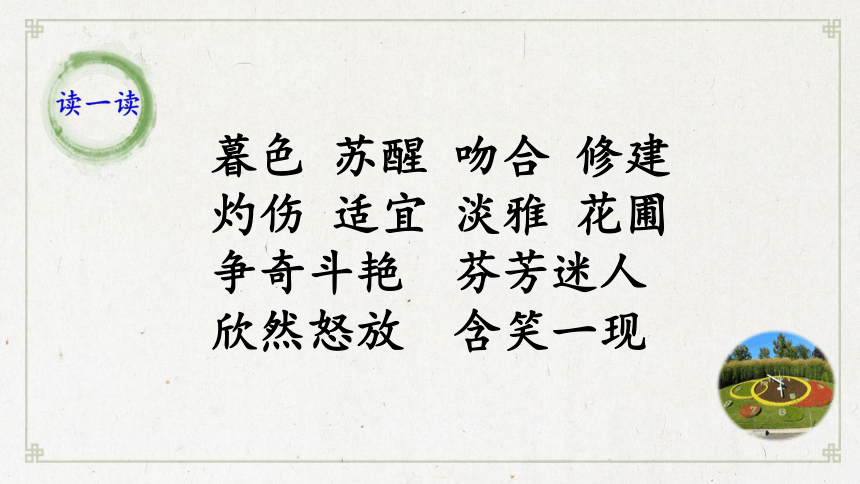 读一读
暮色 苏醒 吻合 修建
灼伤 适宜 淡雅 花圃
争奇斗艳 芬芳迷人
欣然怒放 含笑一现